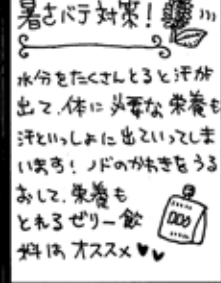 暑さバテ対策！
水分をたくさんとると汗が
出て、体に必要な栄養も
汗といっしょに出ていってしま
います！ノドのかわきをうる
おして、栄養も
とれるゼリー飲
料は、オススメ♥♥